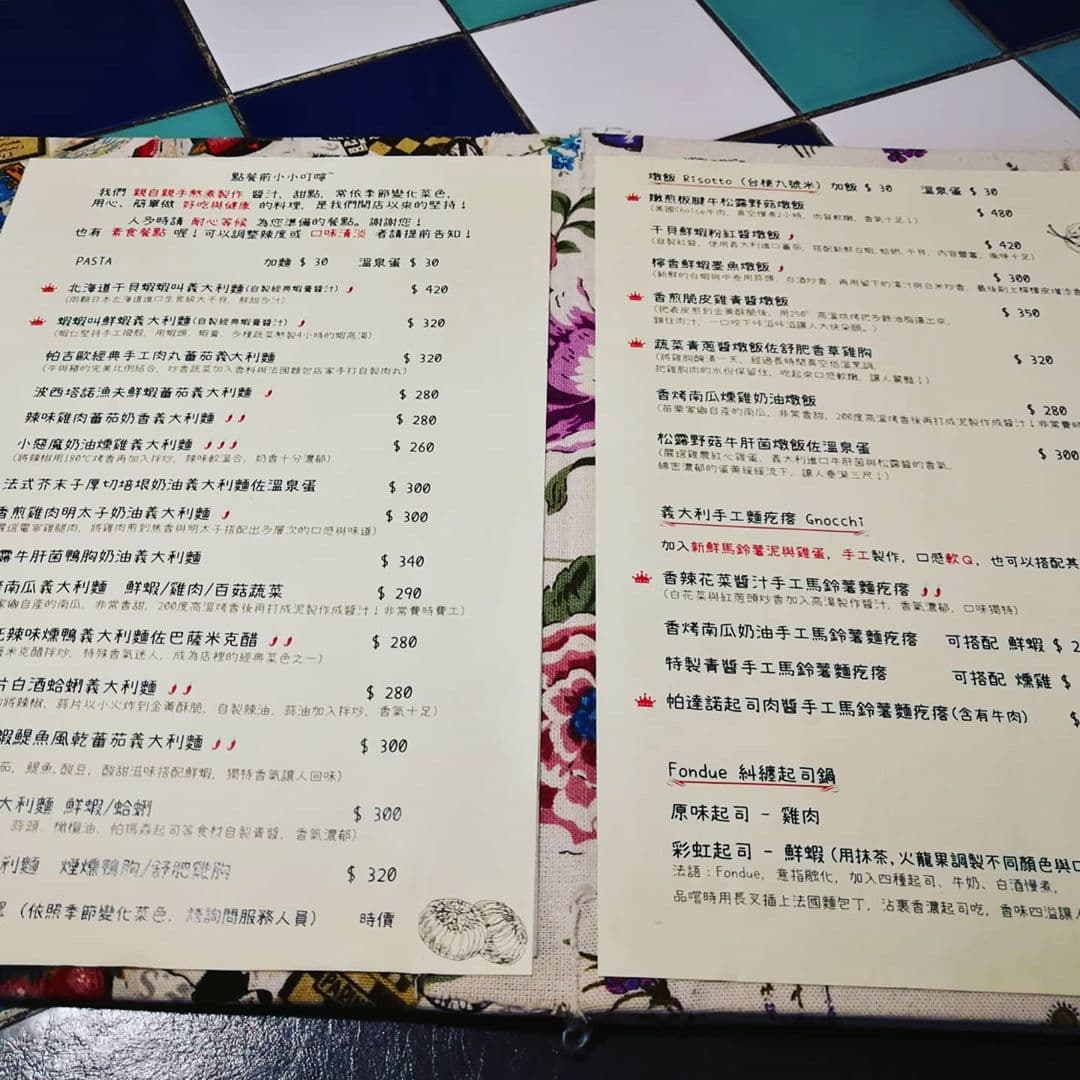 點餐前小小叮嚀~
我們 親自親手熬煮製作 醬汁, 甜點, 常依季節變化菜色,
用心、簡單做 好吃與健康 的料理, 是我們開店以來的堅持!
人多時請 耐心等候 為您準備的餐點。謝謝您!
也有 素食餐點 喔!可以調整辣度或 口味清淡 者請提前告知!
PASTA 加麵 $ 30 溫泉蛋 $ 30
北海道干貝蝦蝦叫義大利麵(自製經典蝦膏醬汁) $ 420
(兩顆日本北海道進口生食級大干貝, 鮮甜多汁)
蝦蝦叫鮮蝦義大利麵(自製經典蝦膏醬汁) $ 320
(蝦仁堅持手工摺殼, 用蝦頭、蝦膏、多種蔬菜熬製4小時的蝦高湯)
帕吉歐經典手工肉丸蕃茄義大利麵 $ 320
(牛與豬的完美比例結合, 炒香蔬菜加入香料與法國麵包店家手打自製肉丸)
波西塔諾漁夫鮮蝦蕃茄義大利麵 $ 280
辣味雞肉蕃茄奶香義大利麵 $ 280
小惡魔奶油燻雞義大利麵 $ 260
(將辣椒用180℃烤香再加入拌炒, 辣味較溫合, 奶香十分濃郁)
法式芥末子厚切培根奶油義大利麵佐溫泉蛋 $ 300
香煎雞肉明太子奶油義大利麵 $ 300
嚴選電宰雞腿肉, 將雞肉煎到焦香與明太子搭配出多層次的口感與味道)
露牛肝菌鴨胸奶油義大利麵 $ 340
南瓜義大利麵 鮮蝦/雞肉/百菇蔬菜 $ 290
家鄉自產的南瓜, 非常香甜, 200度高溫烤香後再打成泥製作成醬汁!非常費時費工)
辣味燻鴨義大利麵佐巴薩米克醋 $ 280
薩米克醋拌炒, 特殊香氣迷人, 成為店裡的經典菜色之一)
片白酒蛤蜊義大利麵 $ 280
將辣椒, 蒜片以小火炸到金黃酥脆, 自製辣油、蒜油加入拌炒, 香氣十足)
蝦鯷魚風乾蕃茄義大利麵 $ 300
茄, 鯷魚,酸豆, 酸甜滋味搭配鮮蝦, 獨特香氣讓人回味)
大利麵 鮮蝦/蛤蜊 $ 300
蒜頭、橄欖油, 帕瑪森起司等食材自製青醬, 香氣濃郁)
利麵 煙燻鴨胸/舒肥雞胸 $ 320
(依照季節變化菜色, 請詢問服務人員) 時價
燉飯 Risotto (台梗九號米) 加飯 $ 30 溫泉蛋 $ 30
嫩煎板腱牛松露野菇燉飯 $ 480
(美國Choice牛肉, 真空慢煮2小時, 肉質軟嫩, 香氣十足!)
干貝鮮蝦粉紅醬燉飯 $ 420
(自製紅醬, 使用義大利進口蕃茄, 搭配新鮮白蝦,蛤蜊,干貝, 內容豐富, 風味十足)
檸香鮮蝦墨魚燉飯 $ 300
(新鮮的白蝦與中卷用蒜頭、白酒炒香, 再用留下的湯汁與白米炒香, 最後刷上檸檬皮增添香
香煎脆皮雞青醬燉飯 $ 350
(把表皮煎到金黃酥脆後, 用250° 高溫烘烤把多餘油脂逼出來,
鎖住肉汁, 一口咬下咔滋咔滋讓人大快朵頤。)
蔬菜青蔥醬燉飯佐舒肥香草雞胸 $ 320
(將雞胸醃漬一天, 經過長時間真空低溫烹調,
把雞胸肉的水份保留住, 吃起來口感軟嫩, 讓人驚豔!)
香烤南瓜燻雞奶油燉飯 $ 280
(苗栗家鄉自產的南瓜, 非常香甜, 200度高溫烤香後再打成泥製作成醬汁!非常費時
松露野菇牛肝菌燉飯佐溫泉蛋 $ 300
(嚴選雞農紅心雞蛋, 義大利進口牛肝菌與松露醬的香氣,
綿密濃郁的蛋黃緩緩流下, 讓人垂涎三尺!)
義大利手工麵疙瘩 Gnocchi
加入新鮮馬鈴薯泥與雞蛋, 手工製作, 口感軟Q, 也可以搭配其
香辣花菜醬汁手工馬鈴薯麵疙瘩
(白花菜與紅蔥頭炒香加入高湯製作醬汁, 香氣濃郁, 口味獨特)
香烤南瓜奶油手工馬鈴薯麵疙瘩 可搭配 鮮蝦 $ 2
特製青醬手工馬鈴薯麵疙瘩 可搭配 燻雞 $
帕達諾起司肉醬手工馬鈴薯麵疙瘩(含有牛肉) $
Fondue 糾纏起司鍋
原味起司 - 雞肉
彩虹起司 - 鮮蝦 (用抹茶,火龍果調製不同顏色與口
法語:Fondue, 意指融化, 加入四種起司、牛奶、白酒慢煮,
品嚐時用長叉插上法國麵包丁, 沾裹香濃起司吃, 香味四溢讓人